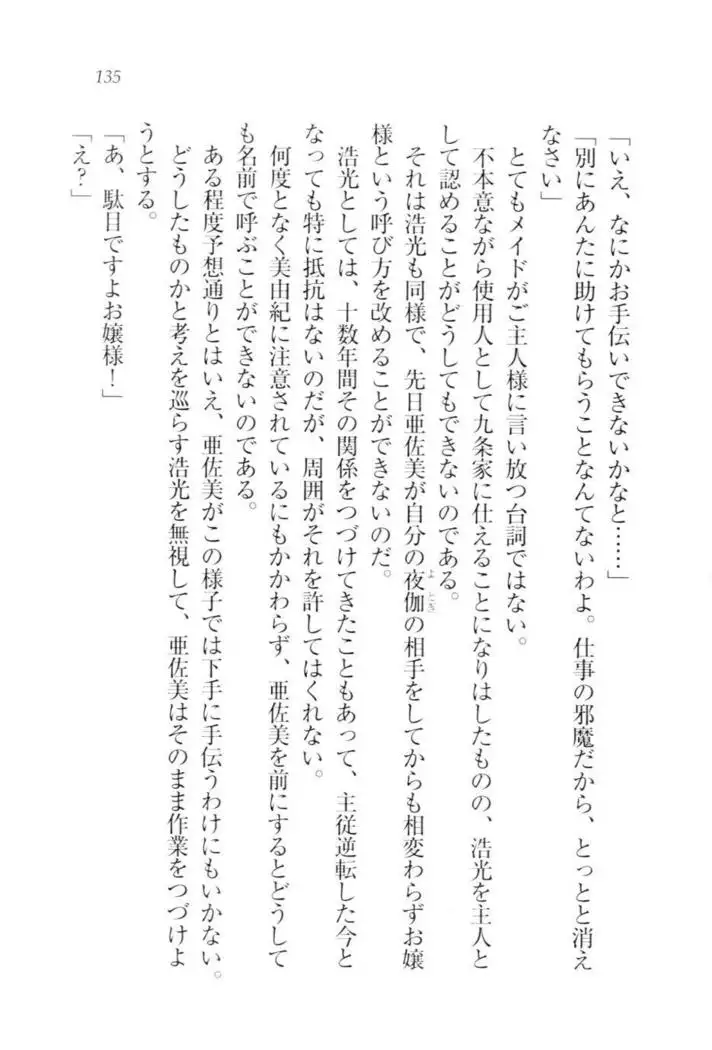 135
「いえ、なにかお手伝いできないかなと……」
「別にあんたに助けてもらうことなんてないわよ。仕事の邪魔だから、とっとと消え
なさい」
とてもメイドがご主人様に言い放つ台詞ではない。
不本意ながら使用人として九条家に仕えることになりはしたものの、浩光を主人と
して認めることがどうしてもできないのである。
それは浩光も同様で、先日亜佐美が自分の夜伽の相手をしてからも相変わらずお嬢
様という呼び方を改めることができないのだ。
浩光としては、十数年間その関係をつづけてきたこともあって、主従逆転した今と
なっても特に抵抗はないのだが、周囲がそれを許してはくれない。
何度となく美由紀に注意されているにもかかわらず、亜佐美を前にするとどうして
も名前で呼ぶことができないのである。
ある程度予想通りとはいえ、亜佐美がこの様子では下手に手伝うわけにもいかない。
どうしたものかと考えを巡らす浩光を無視して、亜佐美はそのまま作業をつづけよ
うとする。
「あ、駄目ですよお嬢様！」
「え？」